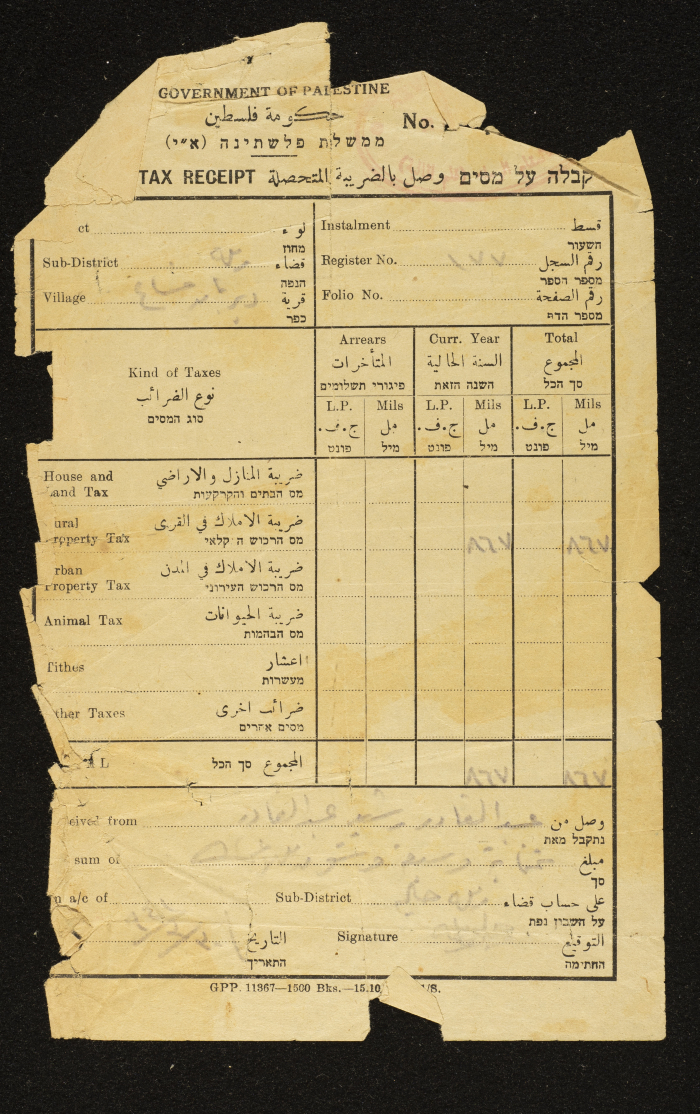 GOVERNMENT OF PALESTINE
حكومة فلسطين
ממשלת פלשתינה (א״י)
No.
TAX RECEIPT وصل بالضريبة المتحصلة קבלה על מסים
ct لواء
מחוז
Sub-District قضاء
הנפה
Village قرية
כפר
Instalment قسط
השעור
Register No. ١٧٧ رقم السجل
מספר הספר
Folio No. رقم الصفحة
מספר הדף
Kind of Taxes
نوع الضرائب
סוג המסים
Arrears Curr. Year Total
المتأخرات السنة الحالية المجموع
פיגורי תשלומים השנה הזאת סך הכל
L.P. Mils L.P. Mils L.P. Mils
ج.ف. مل ج.ف. مل ج.ف. مل
פונט מיל פונט מיל פונט מיל
House and ضريبة المنازل والاراضي
Land Tax מס הבתים והקרקעות
ural ضريبة الاملاك في القرى
roperty Tax מס הרכוש החקלאי ٨٦٧ ٨٦٧
rban ضريبة الاملاك في المدن
Property Tax מס הרכוש העירוני
Animal Tax ضريبة الحيوانات
מס הבהמות
Tithes اعشار
מעשרות
ther Taxes ضرائب اخرى
מסים אחרים
L المجموع סך הכל ٨٦٧ ٨٦٧
eived from عبد القادر رشيد عبد القادر وصل من
נתקבל מאת
sum of مبلغ
סך
n a/c of Sub-District على حساب قضاء
על חשבון נפת
التاريخ Signature التوقيع
התאריך החתימה
GPP. 11367—1500 Bks.—15.10. /S.